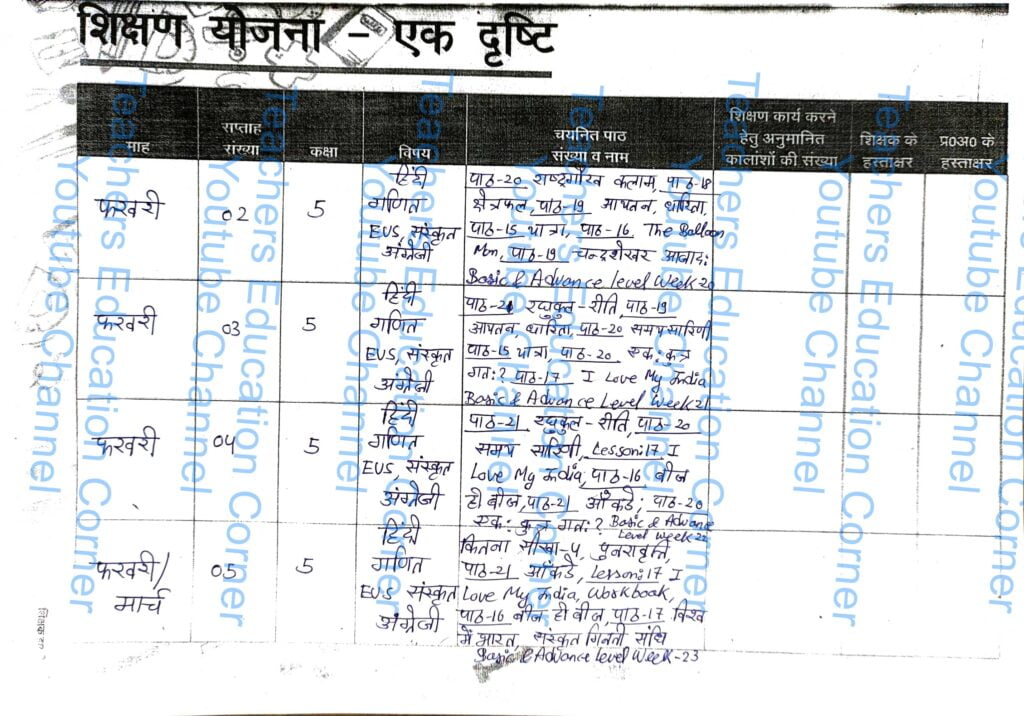 शिक्षण योजना – एक दृष्टि
माह
सप्ताह
संख्या
कक्षा
विषय
चयनित पाठ
संख्या व नाम
शिक्षण कार्य करने
हेतु अनुमानित
कालाशों की संख्या
शिक्षक के
हस्ताक्षर
प्र0अ0 के
हस्ताक्षर
फरवरी
02
5
हिंदी
गणित
EVS, संस्कृत
अंग्रेजी
पाठ-20 राष्ट्रगौरव कलाम, पाठ-18
क्षेत्रफल, पाठ-19 आयतन, धारिता,
पाठ-15 यात्रा, पाठ-16 The Balloon
Man, पाठ-19 चन्द्रशेखर आजाद:
Basic & Advance level Week 20
फरवरी
03
5
हिंदी
गणित
EVS, संस्कृत
अंग्रेजी
पाठ-21 रघुकुल-रीति, पाठ-19
आयतन, धारिता, पाठ-20 समयसारिणी
पाठ-15 यात्रा, पाठ-20 एक: कुत्र
गत:? पाठ-17 I Love My India
Basic & Advance Level Week 21
फरवरी
04
5
हिंदी
गणित
EVS, संस्कृत
अंग्रेजी
पाठ-21 रघुकुल-रीति, पाठ-20
समय सारिणी, Lesson:17 I
Love My India, पाठ-16 बीज
ही बीज, पाठ-21 आँकड़े, पाठ-20
एक: कुत्र गत:? Basic & Advance
Level Week 22
फरवरी/
मार्च
05
5
हिंदी
गणित
EVS संस्कृत
अंग्रेजी
कितना सीखा-4, पुनरावृत्ति,
पाठ-21 आँकड़े, Lesson:17 I
Love My India, Workbook,
पाठ-16 बीज ही बीज, पाठ-17 विश्व
में भारत, संस्कृत गिनती संधि
Basic & Advance Level Week-23
Teachers Education Corner
Youtube Channel
Teachers Education Corner
Youtube Channel
Teachers Education Corner
Youtube Channel
Teachers Education Corner
Youtube Channel
Teachers Education Corner
Youtube Channel
Teachers Education Corner
Youtube Channel